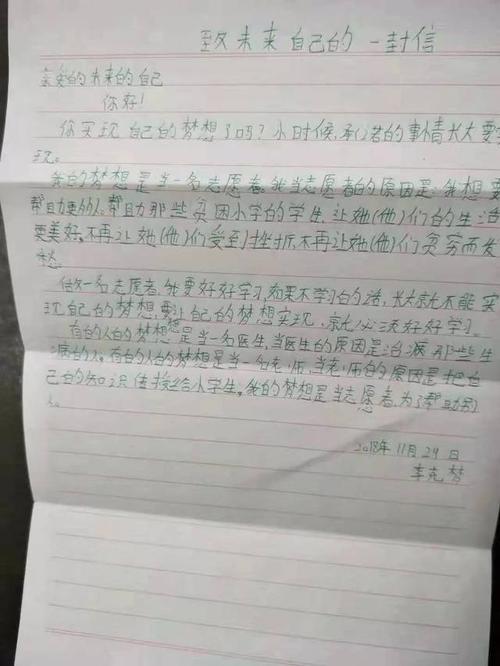 致未来自己的一封信
亲爱的未来的自己
你好!
你实现自己的梦想了吗?小时候,承诺的事情长大要实
现。
我的梦想是当一名志愿者。我当志愿者的原因是:我想要
帮助的人。帮助那些贫困小学的学生,让她(他)们的生活
更美好。不再让她(他)们受到挫折,不再让她(他)们贫穷而发
愁。
做一名志愿者,我要好好学习,如果不学习的话,长大就不能实
现自己的梦想,要让自己的梦想实现,就必须好好学习。
有的人的梦想是当一名医生,当医生的原因是治病那些生
病的人。有的人的梦想是当一名老师,当老师的原因是把自
己的知识传授给小学生。我的梦想是当志愿者,为了帮助别
人。
2018年11月29日
李克梦